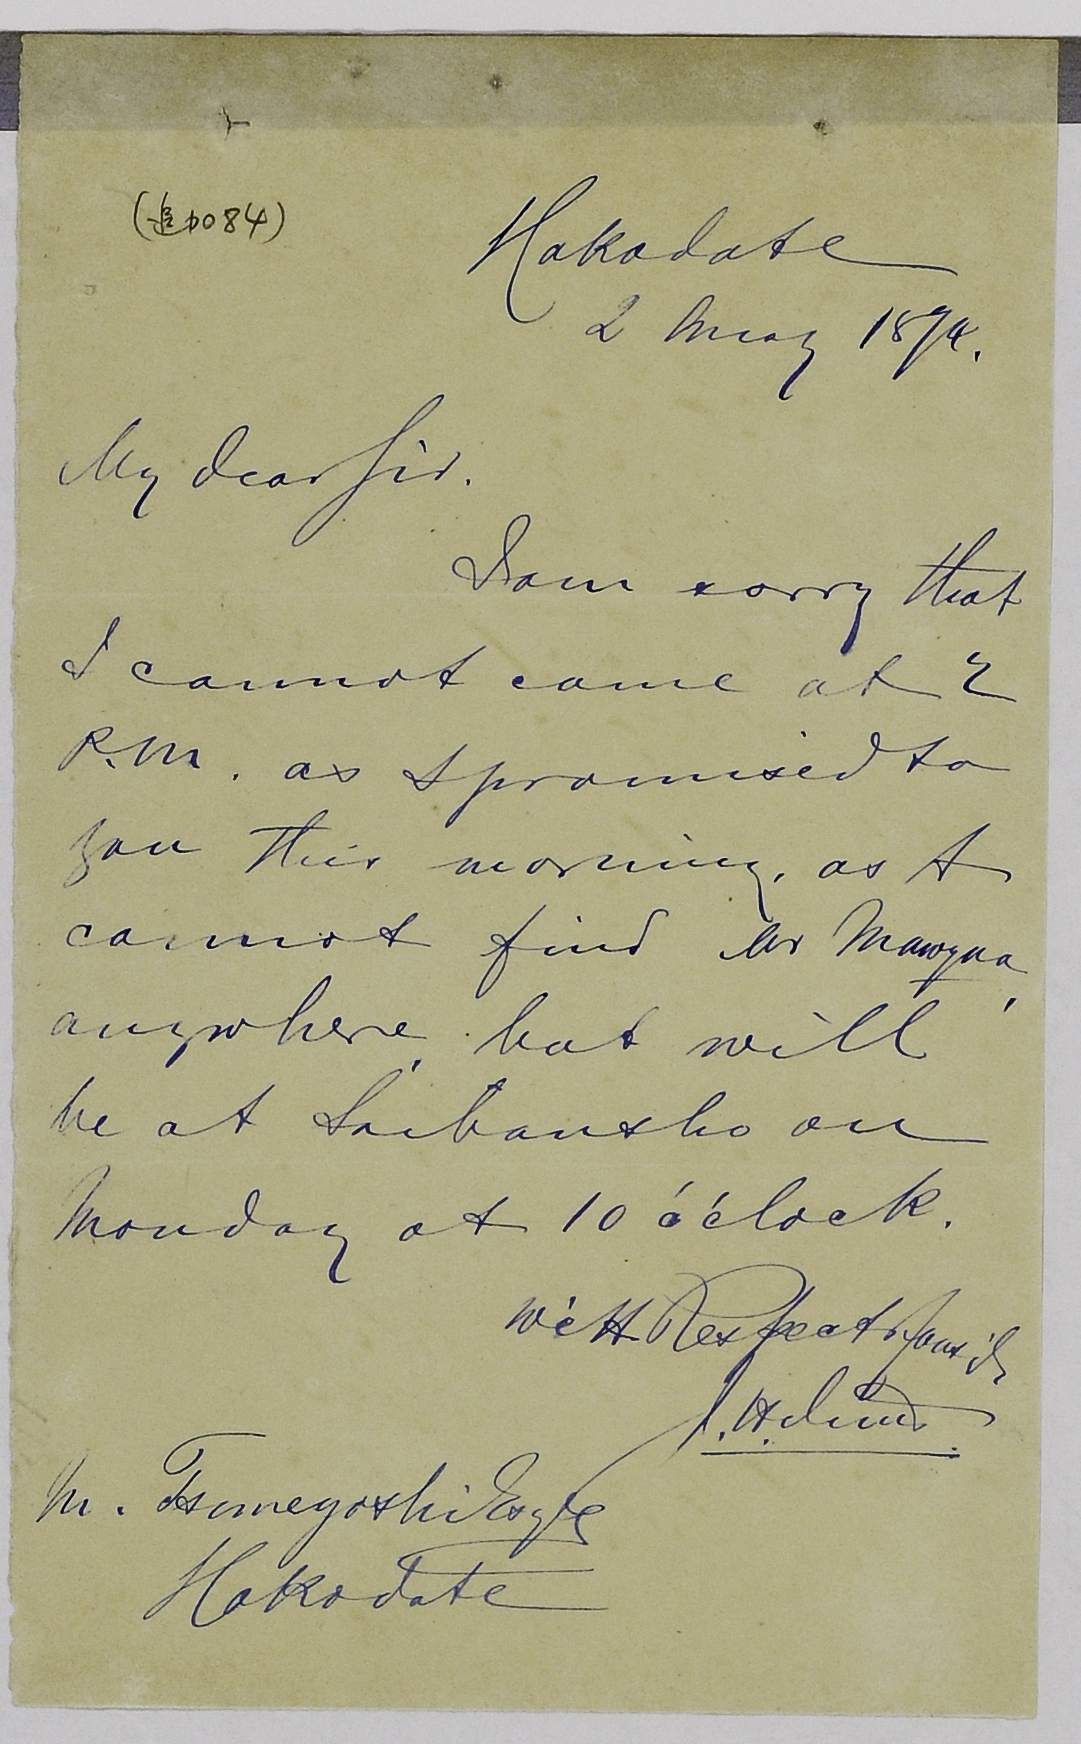 (追加084)
Hakodate
2 May 1874.
My dear Sir.
I am sorry that
I cannot come at 2
P.M. as I promised to
you this morning, as I
cannot find Mr
anywhere, but will
be at Saibansho on
Monday at 10 o'clock.
with Respects
J. H.
M. Tsumeyoshi Esqre
Hakodate